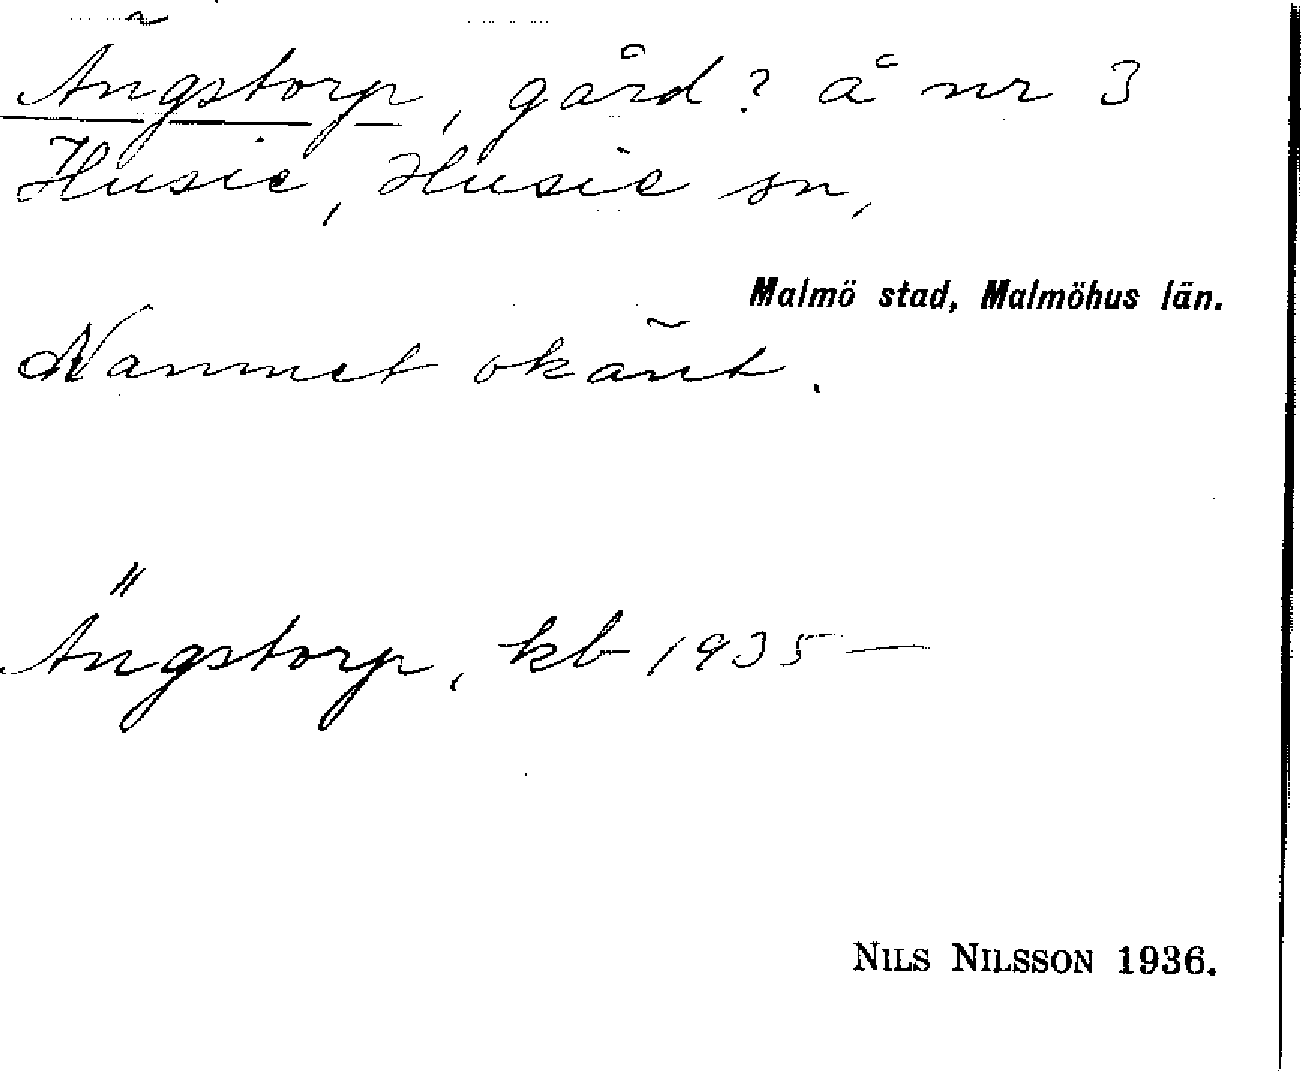 Ängstorp, gård? å nr 3
Husie, Husie sn,
Malmö stad, Malmöhus län.
Namnet okänt.
Ängstorp, kb 1935—
NILS NILSSON 1936.